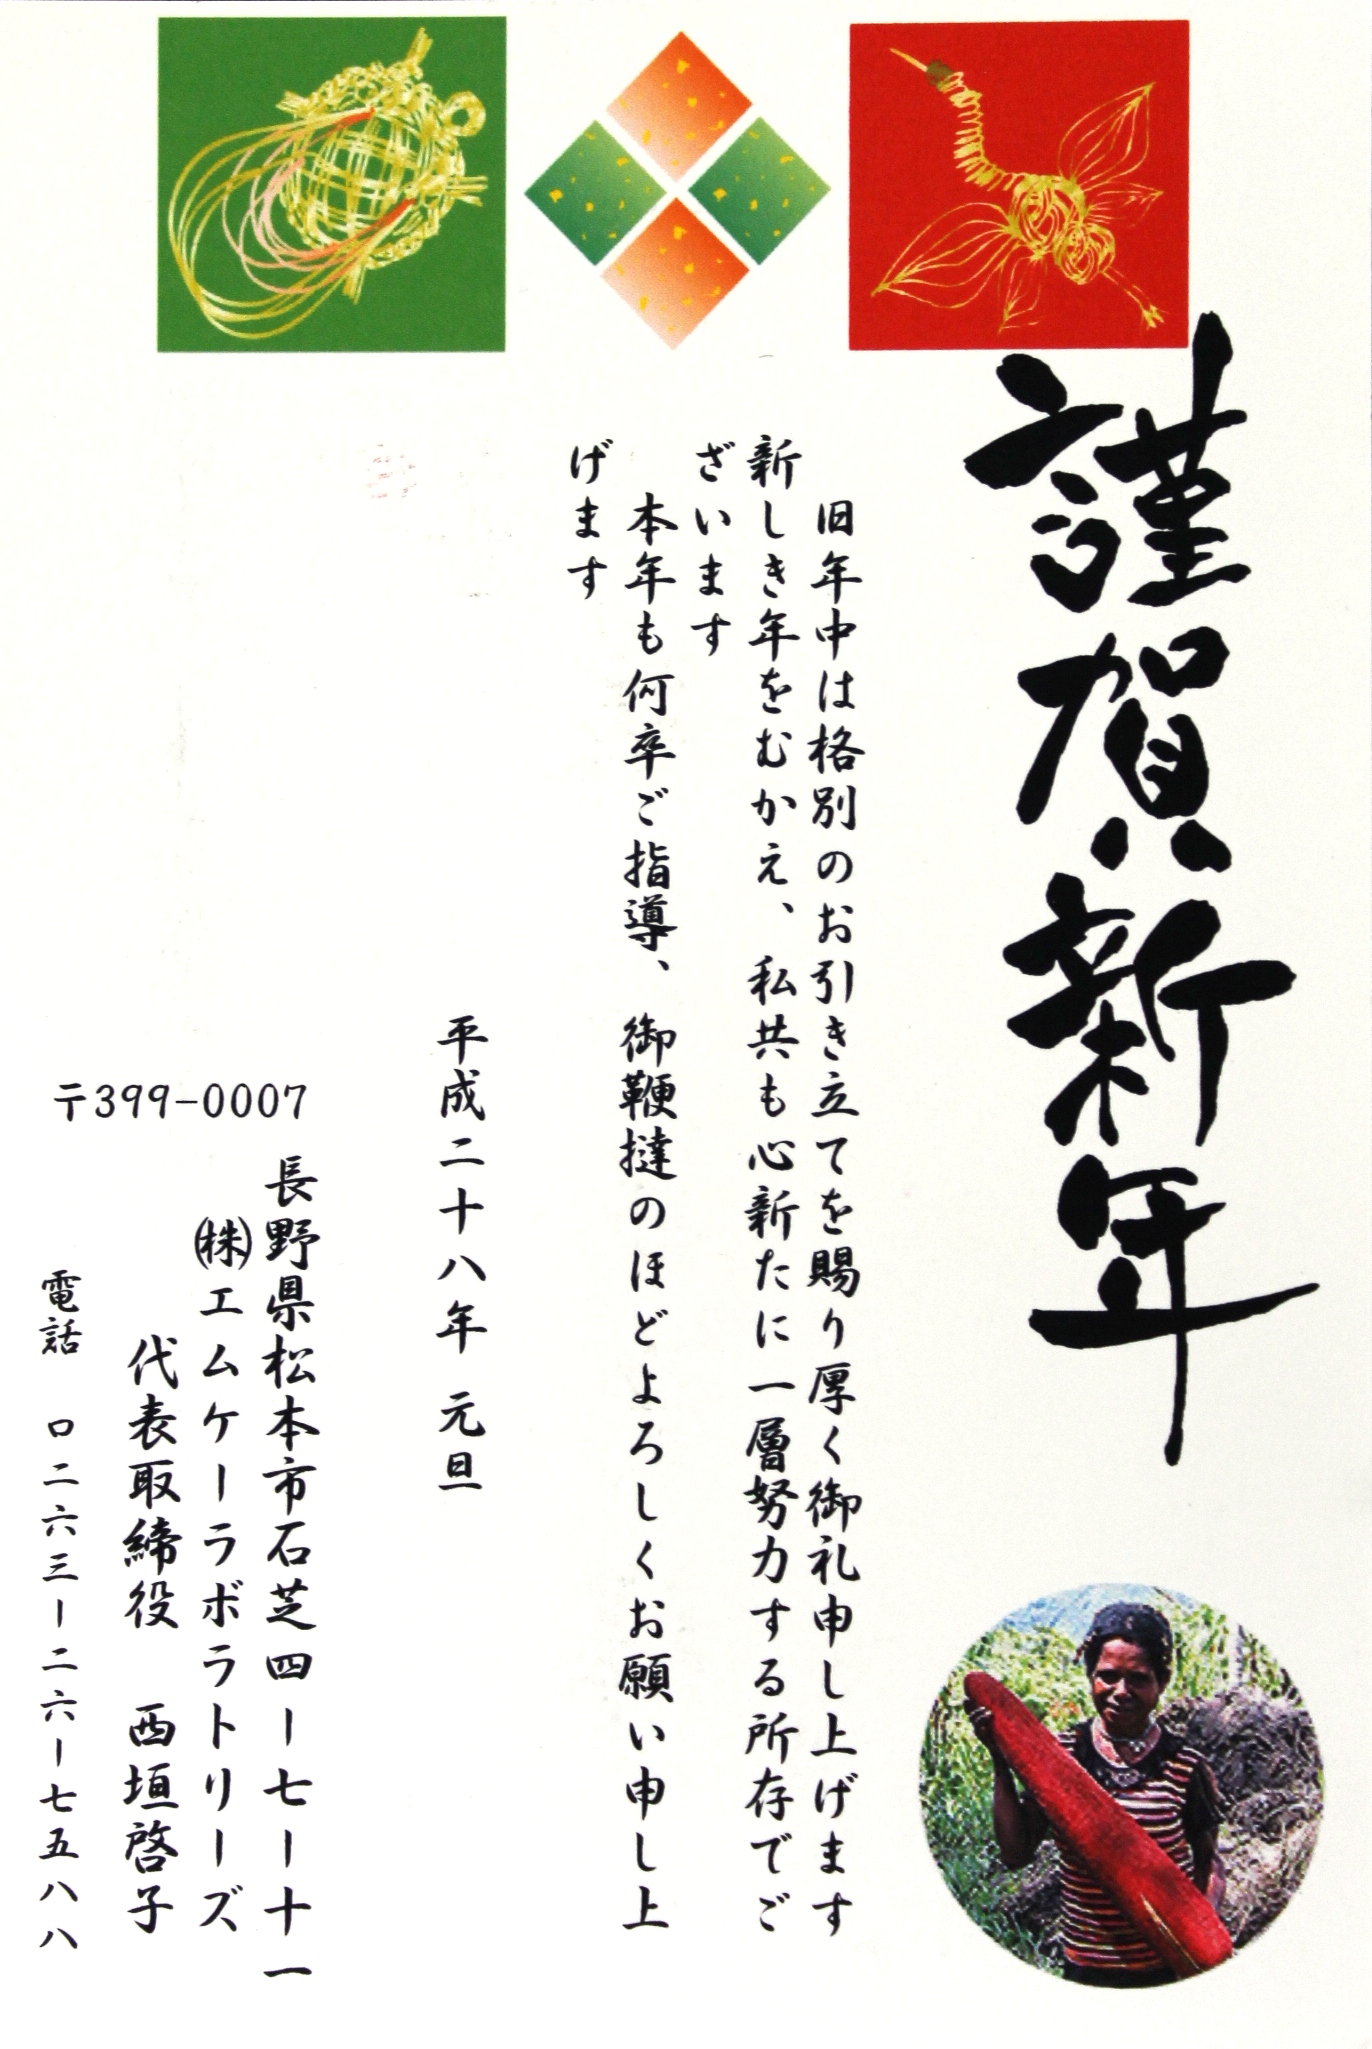 謹賀新年
旧年中は格別のお引き立てを賜り厚く御礼申し上げます
新しき年をむかえ、私共も心新たに一層努力する所存でご
ざいます
本年も何卒ご指導、御鞭撻のほどよろしくお願い申し上
げます
平成二十八年 元旦
〒399-0007
長野県松本市石芝四ー七ー十一
㈱エムケーラボラトリーズ
代表取締役 西垣啓子
電話 ロ二六三ー二六ー七五八八